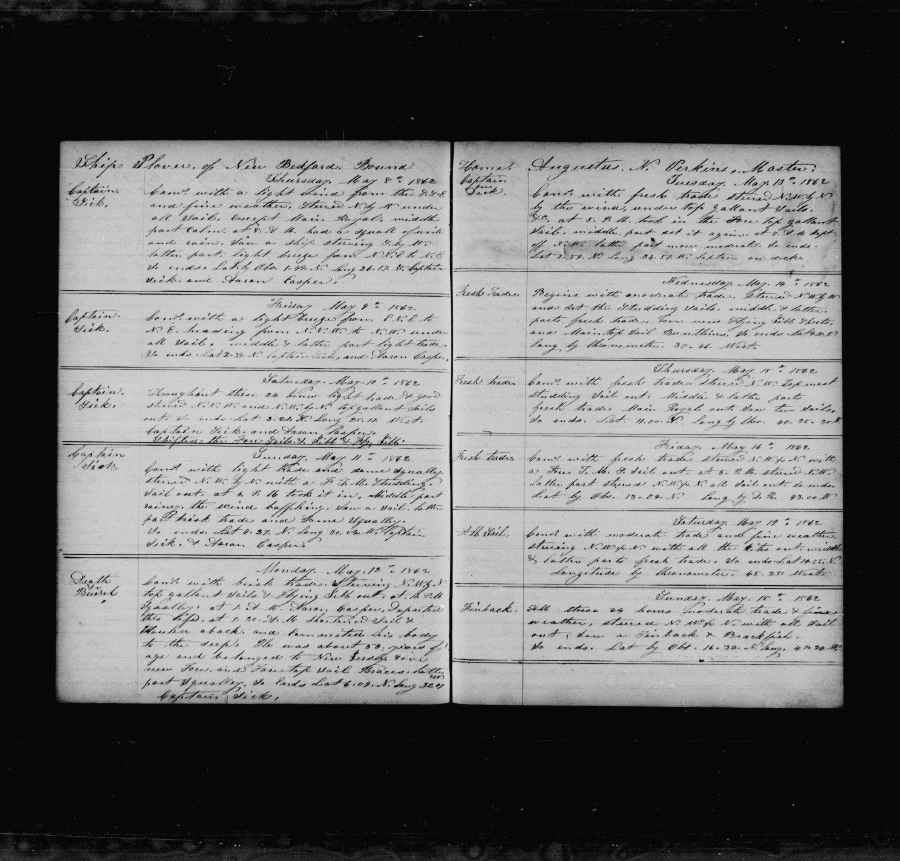 Ship Plover, of New Bedford Bound
Thursday, May 8th 1862
Captain Sick,
Comd. with a light wind from the
and fine weather. Steered N by W under
all Sail, Except Main Royal, middle
part Calm at 8. A. M. had a squall of wind
and rain. Saw a ship steering S. by W.
latter part, light breeze from N.N.E. to N.E.
So ends. Lat by Obs. N. Long W. Captain
Sick. and Aaron Casper.
Friday May 9th 1862
Captain Sick.
Comd. with a light breeze from E.N.E. to
N.E. heading from N.N.W. to N.W. under
all Sail, middle & latter part light trade.
So ends Lat N. Captain Sick, and Aaron Casper.
Saturday May 10th 1862
Captain Sick.
Throughout these 24 hours light trade & good
steered N.N.W. and N.W. by N. Top gallant Sails
out So ends Lat N. Long West.
Captain Sick. and Aaron Casper
Shifted the Fore Sail & Jibb & Fly Jibb.
Sunday May 11th 1862
Captain Sick
Comd. with light trade and some squally.
steered N.W. by N. with a F. T. M. Studding
Sail out. at P. M. took it in, Middle part
rainy, the wind baffling, Saw a Sail. latter
part brisk trade and Some Squally.
So ends Lat N. Long W. Captain
Sick. & Aaron Casper.
Monday. May. 12th 1862
Death Buriel
Comd. with brisk trade. Steering N.W. by N
top gallant Sails & Flying Jibb out. at P. M
Squally. at A. M. Aaron Casper, Departed
this life. at A. M shortened Sail &
aback. and committed his body
to the deep. He was about 50. years of
age and belonged to New Jersey
new Fore and Fore top Sail Braces. latter
part Squally, So Ends Lat N. Long
Captain Sick.
Home. Augustus. N. Perkins. Master.
Tuesday. May 13th 1862
Captain Sick
Comd. with fresh trade steered N.W. by N
by the wind, under top gallant Sails.
at P. M. took in the Fore top gallant
Sail. middle part set it again at
off N.W. latter part more moderate. So ends.
Lat N. Long W. Captain on sick
Wednesday. May 14th 1862
Fresh Trade.
Begins with moderate trade. Steered N.W. by W
and set the Studding Sails. middle & latter
parts fresh trade. new Flying Jibb Sheets.
and Maintop Sail Buntlins. So ends Lat
Long by Chronometer. West.
Thursday. May 15th 1862
Fresh trade
Comd. with fresh trade steered N.W. Top mast
Studding Sail out. Middle & latter parts
fresh trade Main Royal out. Saw two Sails.
So ends. Lat. 11.00. N. Long by Chro.
Friday. May 16th 1862
Fresh trade
Comd. with fresh trade steered N.W. by N. with
a Fore T. M. S. Sail out. at 5. P. M. steered N.W.
latter part steered N.W. by N. all Sail out. So ends.
Lat by Obs. N Long by 43.00. W
Saturday May 17th 1862
All Sail.
Comd with moderate trade and fine weather,
steering N.W. by N. with all the kites out. middle
& latter parts fresh trade. So ends Lat N.
Longitude by Chronometer. West.
Sunday. May. 18th 1862
Finback.
All these 24 hours moderate trade & fine
weather, steered N.W. by N. with all Sail
out. Saw a Finback & Blackfish.
So ends. Lat by Obs. 16.32. N. Long. W.